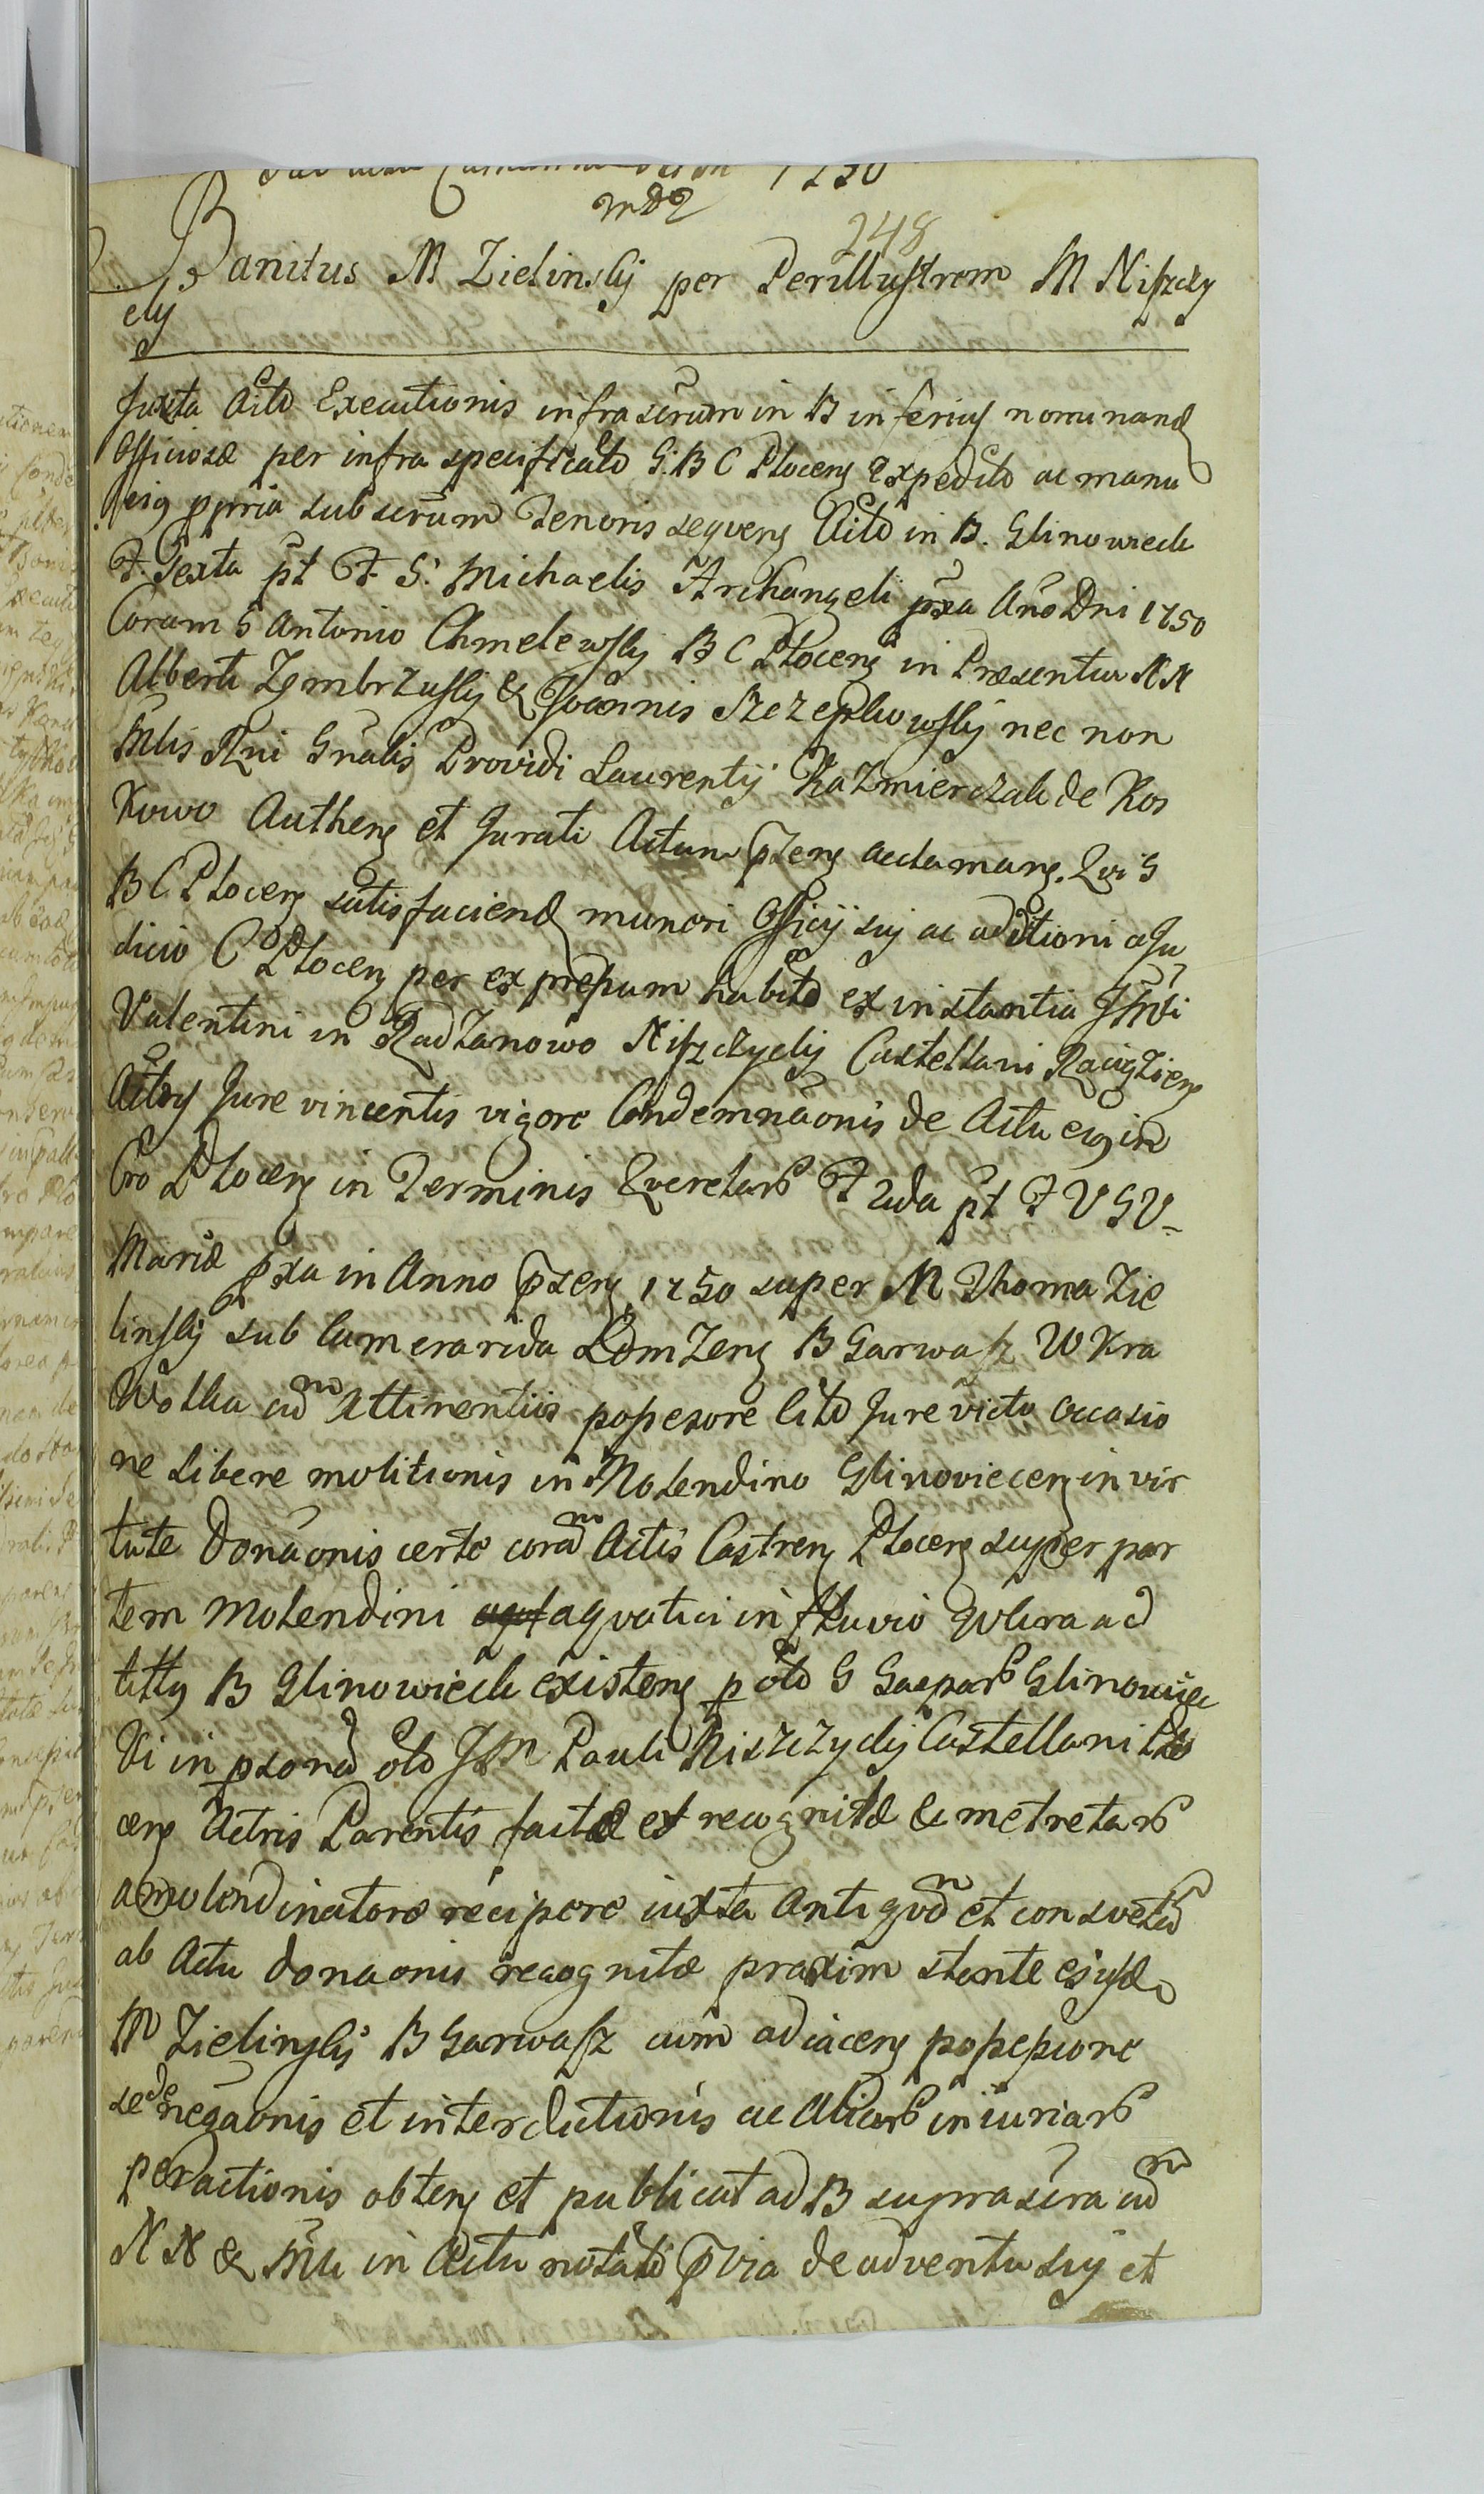 1750
248
Banitus M Zielinskij per Perillustrem M Niszczy
ckij
Juxta Actū Executionis infrascrūm in B inferius nominand
Officiose per infra specificatū G. B C Plocen Expeditū ac manu
eius ppria subscrūm Tenoris sequens Actū in B. Glinowieck
F. Sexta pt F. S. Michaelis Archangeli pxa Año Dni 1750
Coram G Antonio Chmelewskij B C Plocen in Præsentia NN
Alberti Zembrzuskij & Joannis Szczepkowskij nec non
Mlis Rni Gnalis Providi Laurentij Kazmierczak de Kos
Kowo Authen et Jurati Actum pzens acclamans. Qui G
B C Plocen satisfaciend muneri Officij sui ac additioni a Ju
dicio C Plocen per expressum habitæ ex instantia
Valentini in Radzanowo Niszczyckij Castellani Raciązien
Actris Jure vincentis vigore Condemnaonis de Actu eius in
Cro Plocen in Terminis Querelarū F 2da pt F V G V
Mariæ pxa in Anno pzens 1750 super M Thoma Zie
linskij sub Camerarida Lomzens B Garwasz W Kra
Wolka cū Attinentiis possessore Citō Jure victo occasio
ne Libere molitionis in Molendino Glinoviecen in vir
tute Donaonis certe corā Actis Castren Plocen super par
tem Molendini aquatici in fluvio Wkra ad
littus B Glinowieck existens p olō G Gasparū Glinowiec
Ki in psonā olō JM Pauli Niszczyckij Castellani Plo
cens Actris Parentis factæ et recognitæ & metretarū
a molendinatore recipere iuxta Antiquā et consvetā
ab Actu donaonis recognitæ praxim stante ejusd
M Zielinskij B Garwasz cum adiacens possessione
se denegaonis et interdictionis ac aliarū iniuriarū
peractionis obtens et publicat ad B suprascra cū
NN & Mli in Actu notatō pvia de adventu sui et